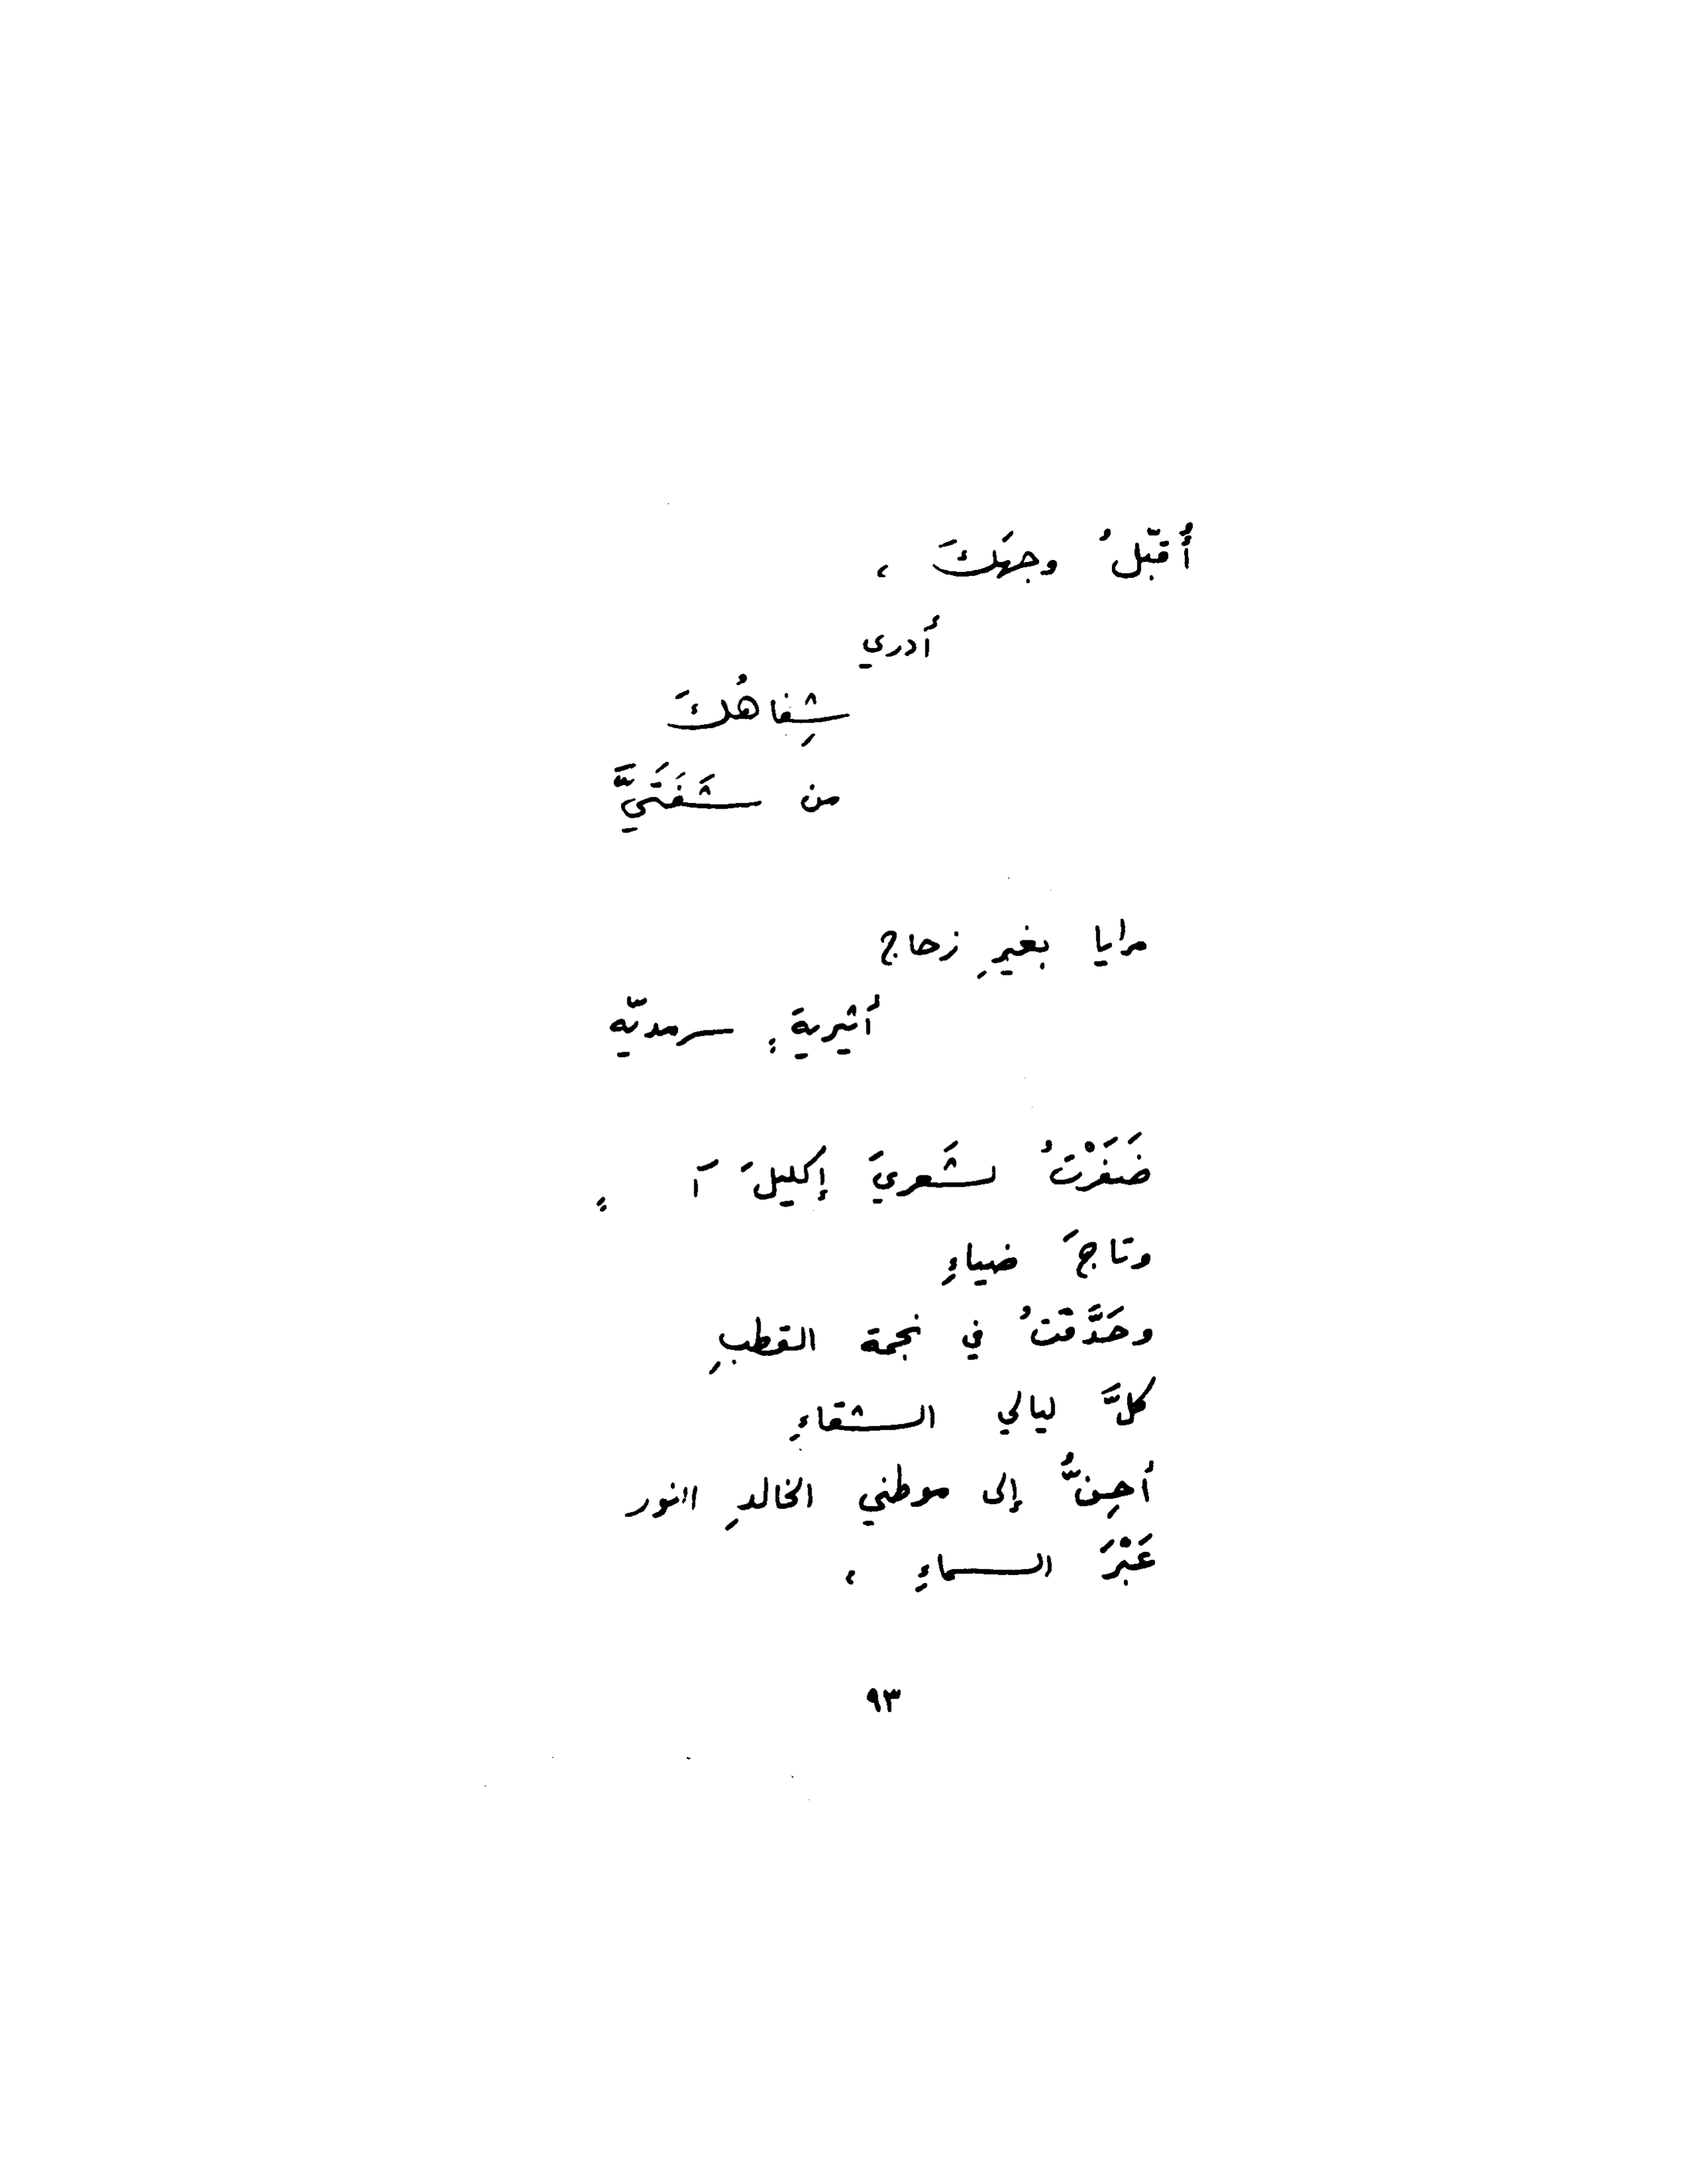 أُقبّلُ وجهَكَ ،
أَدري
شِفاهُكَ
من شَفَتَيَّ
مرايا بغيرِ زجاج
أَثيريةَ ٍ سرمديّه
ضَفَرْتُ لشَعريَ إكليلَ آ ٍ
وتاجَ ضياءِ
وحَدَّقتُ في نجمة القطبِ
كلَّ ليالي الشقاءِ
أحِنُّ إلى موطني الخالدِ النور
عَبْرَ السماءِ ،
٩٣